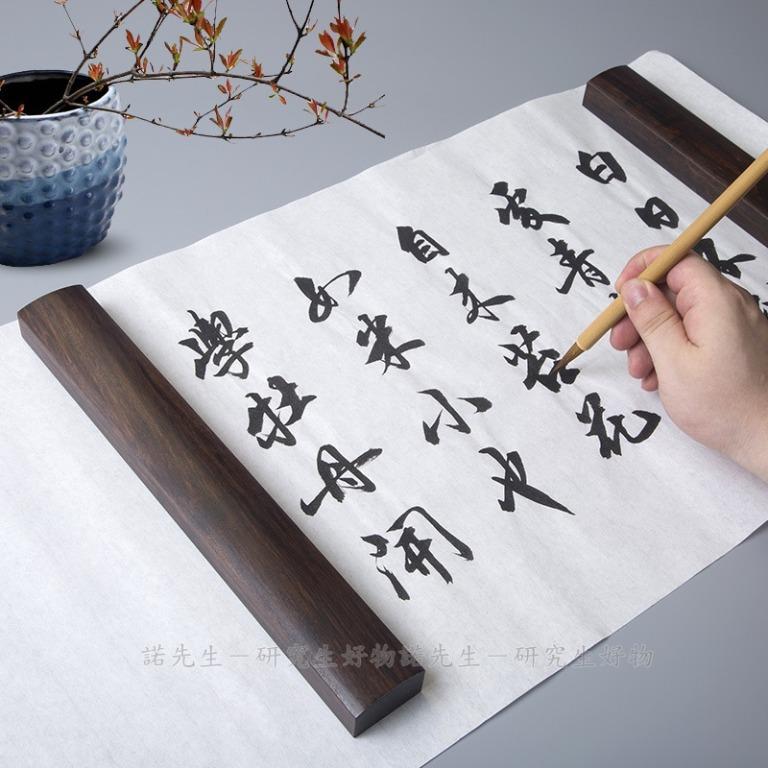 白日不
處青
自来苔花
如米小也
學牡丹開
諾先生－研究生好物諾先生－研究生好物